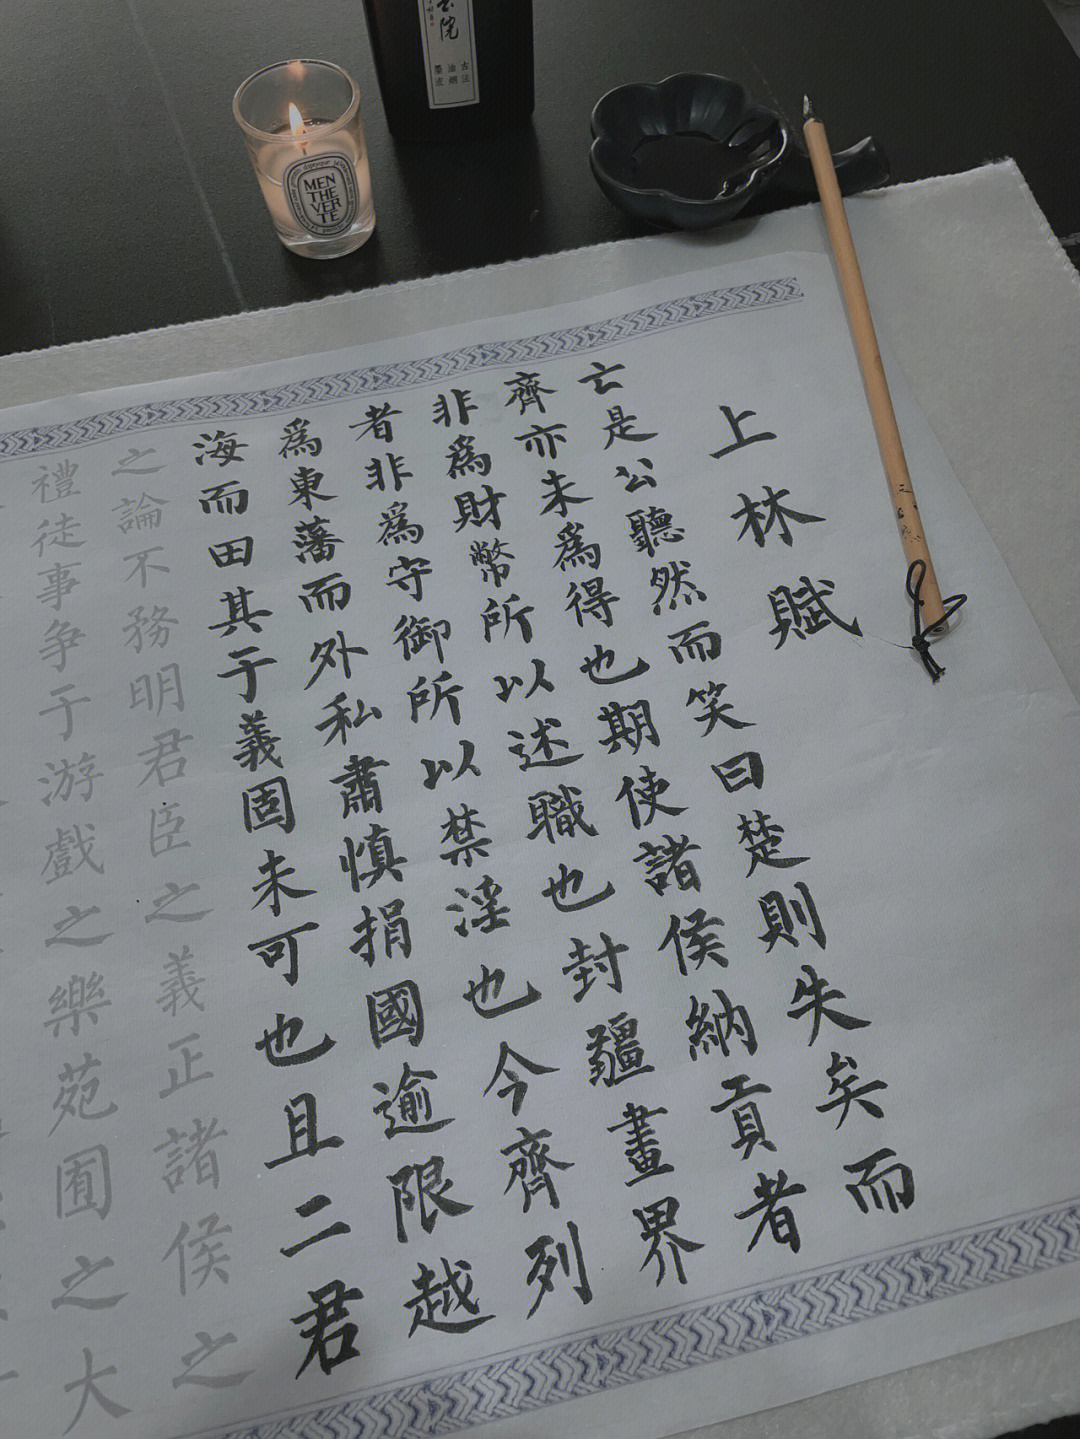 MEN
THE
VER
TE
古法
油烟
上林賦
亡是公聽然而笑曰楚則失矣而
齊亦未爲得也期使諸侯納貢者
非爲財幣所以述職也封疆畫界
者非爲守御所以禁淫也今齊列
爲東藩而外私肅慎捐國逾限越
海而田其于義固未可也且二君
之論不務明君臣之義正諸侯之
禮徒事争于游戲之樂苑囿之大